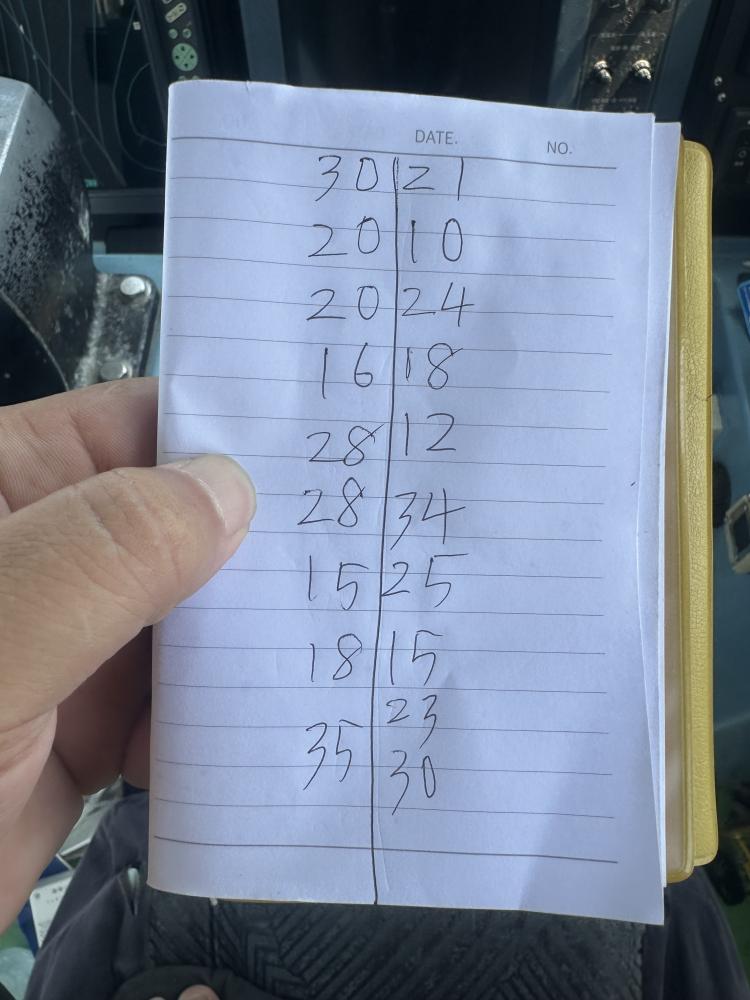 DATE. NO.
30 21
20 10
20 24
16 18
28 12
28 34
15 25
18 15
23
35
30